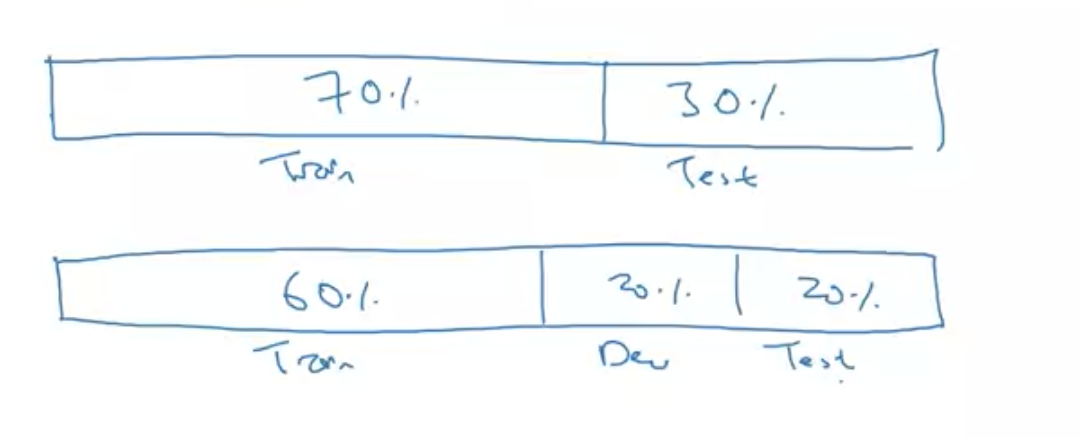 70% 30%
Train Test
60% 20% 20%
Train Dev Test